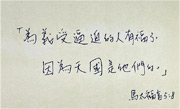 「為義受逼迫的人有福了
因為天國是他們的。」
馬太福音5:8